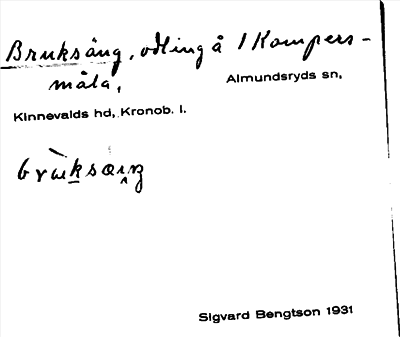 Bruksäng, odling å 1 Kompers-
måla,
Almundsryds sn,
Kinnevalds hd, Kronob. l.
Sigvard Bengtson 1931